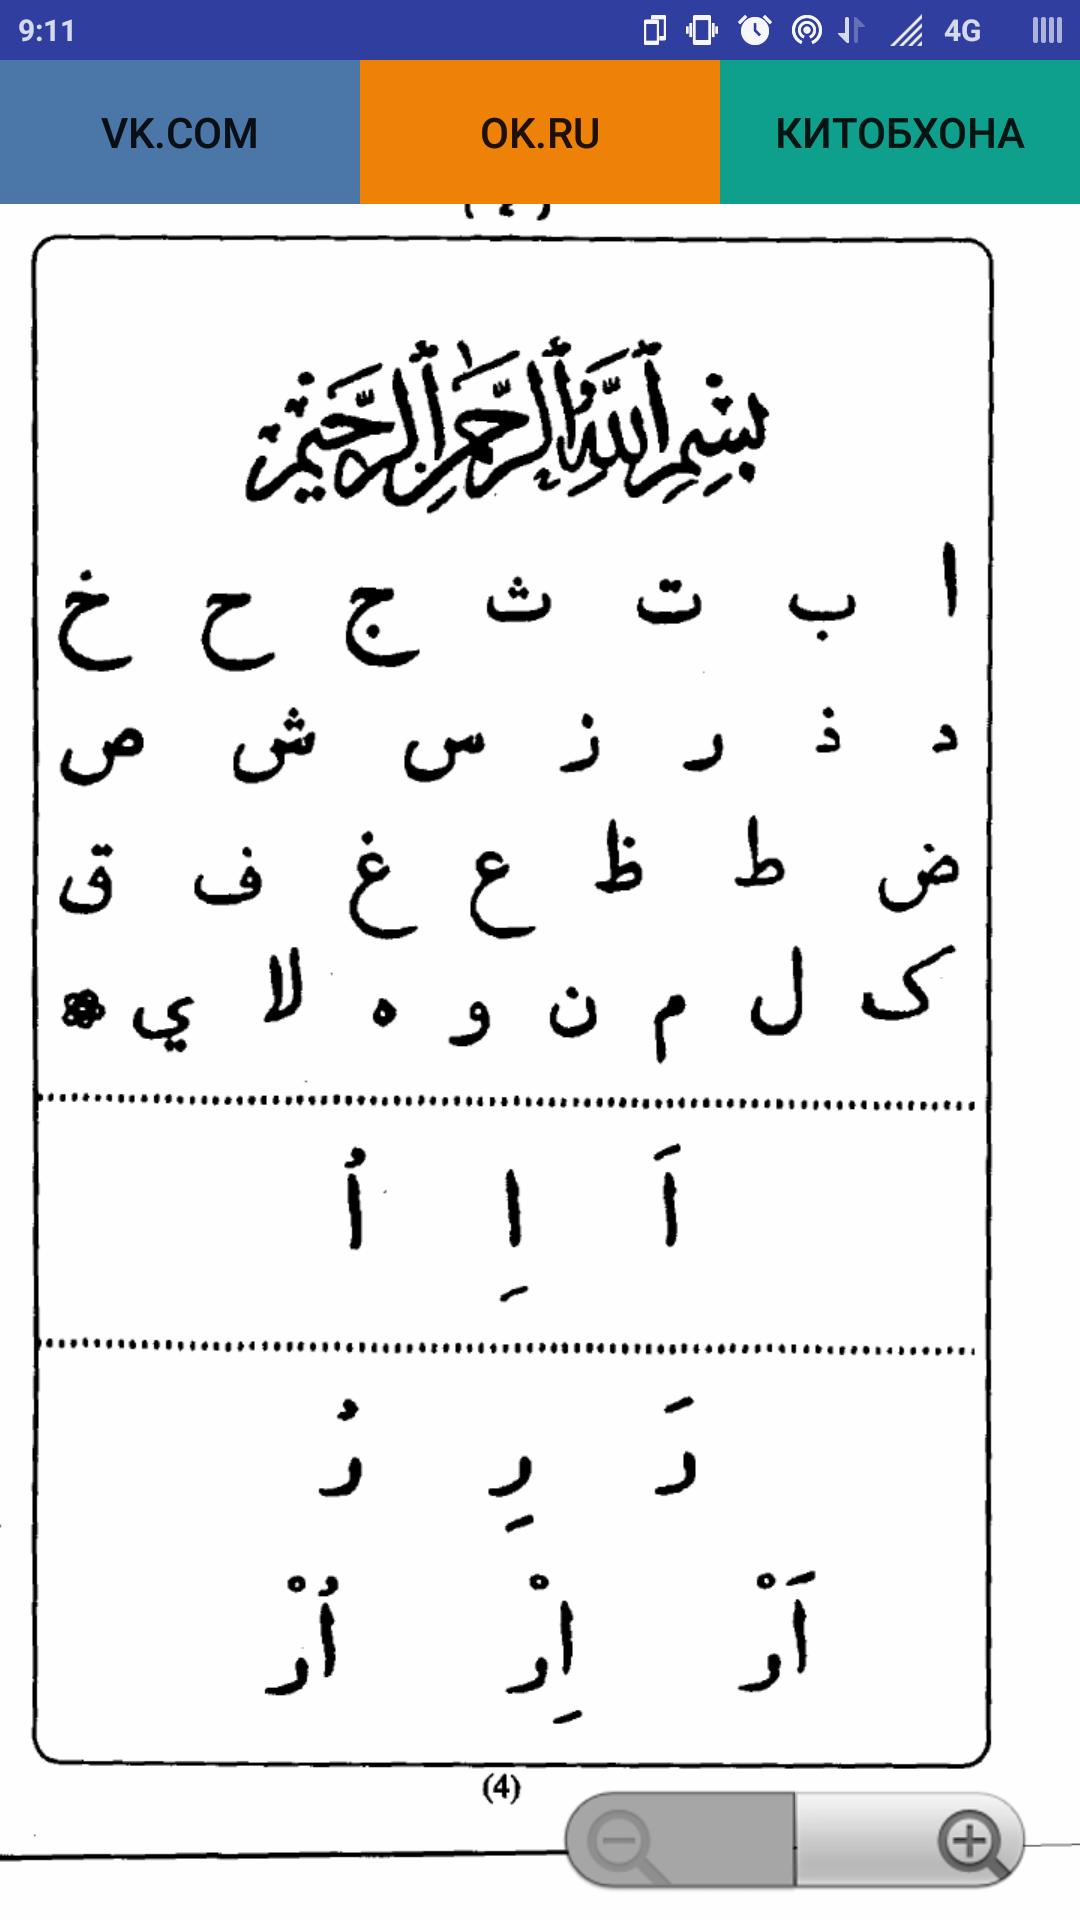 9:11 4G
VK.COM OK.RU КИТОБХОНА
بِسْمِ ٱللَّهِ ٱلرَّحْمَٰنِ ٱلرَّحِيمِ
ا ب ت ث ج ح خ
د ذ ر ز س ش ص
ض ط ظ ع غ ف ق
ک ل م ن و ه لا ي
اَ اِ اُ
رَ رِ رُ
اَرْ اِرْ اُرْ
(4)